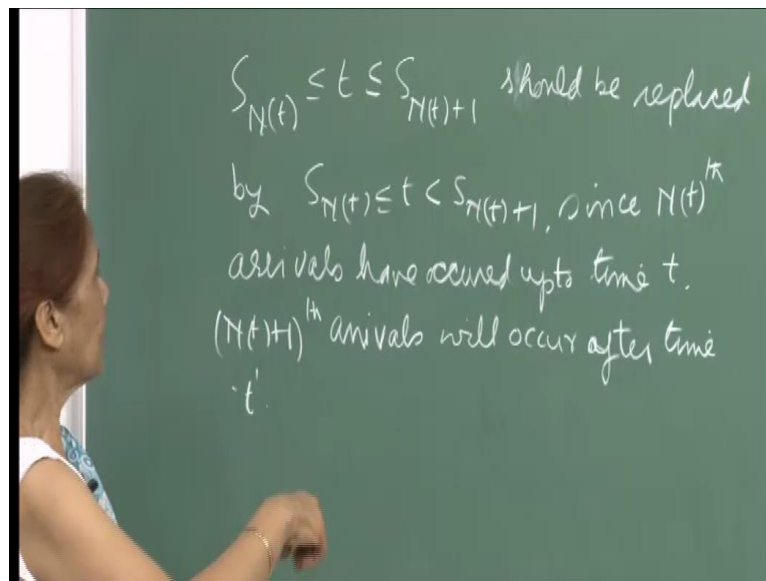 S_{N(t)} ≤ t ≤ S_{N(t)+1} should be replaced
by S_{N(t)} ≤ t < S_{N(t)+1}, since N(t)^{th}
arrivals have occured upto time t.
(N(t)+1)^{th} arrivals will occur after time
't'.